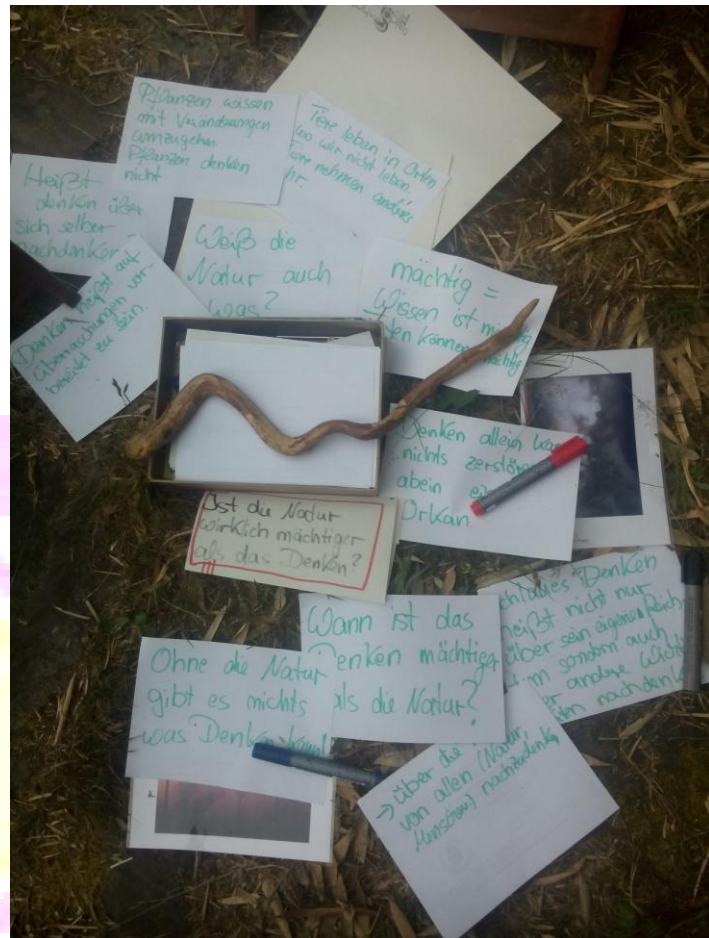 Pflanzen wissen
mit Veränderungen
umzugehen
Pflanzen denken
nicht
Tiere leben in Orten
wo wir nicht leben.
Tiere nehmen anders
Heißt
denken über
sich selber
nachdenken
Weiß die
Natur auch
was?
Denken heißt auf
Überraschungen vor-
bereitet zu sein.
mächtig =
Wissen ist mächtig
können mächtig
Denken allein kann
nichts zerstören
abein ein
Orkan.
Ist die Natur
wirklich mächtiger
als das Denken?
Denken
heißt nicht nur
über sein eigenen
sondern auch
andere
nachdenken
Wann ist das
Denken mächtiger
als die Natur?
Ohne die Natur
gibt es nichts
was Denken kann!
→ über die
von allen (Natur,
Menschen) nachzudenken